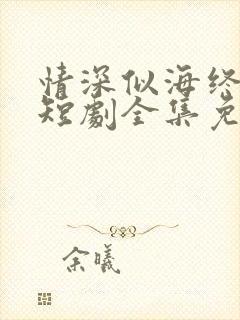 情深似海终
短劇全集免
余曦